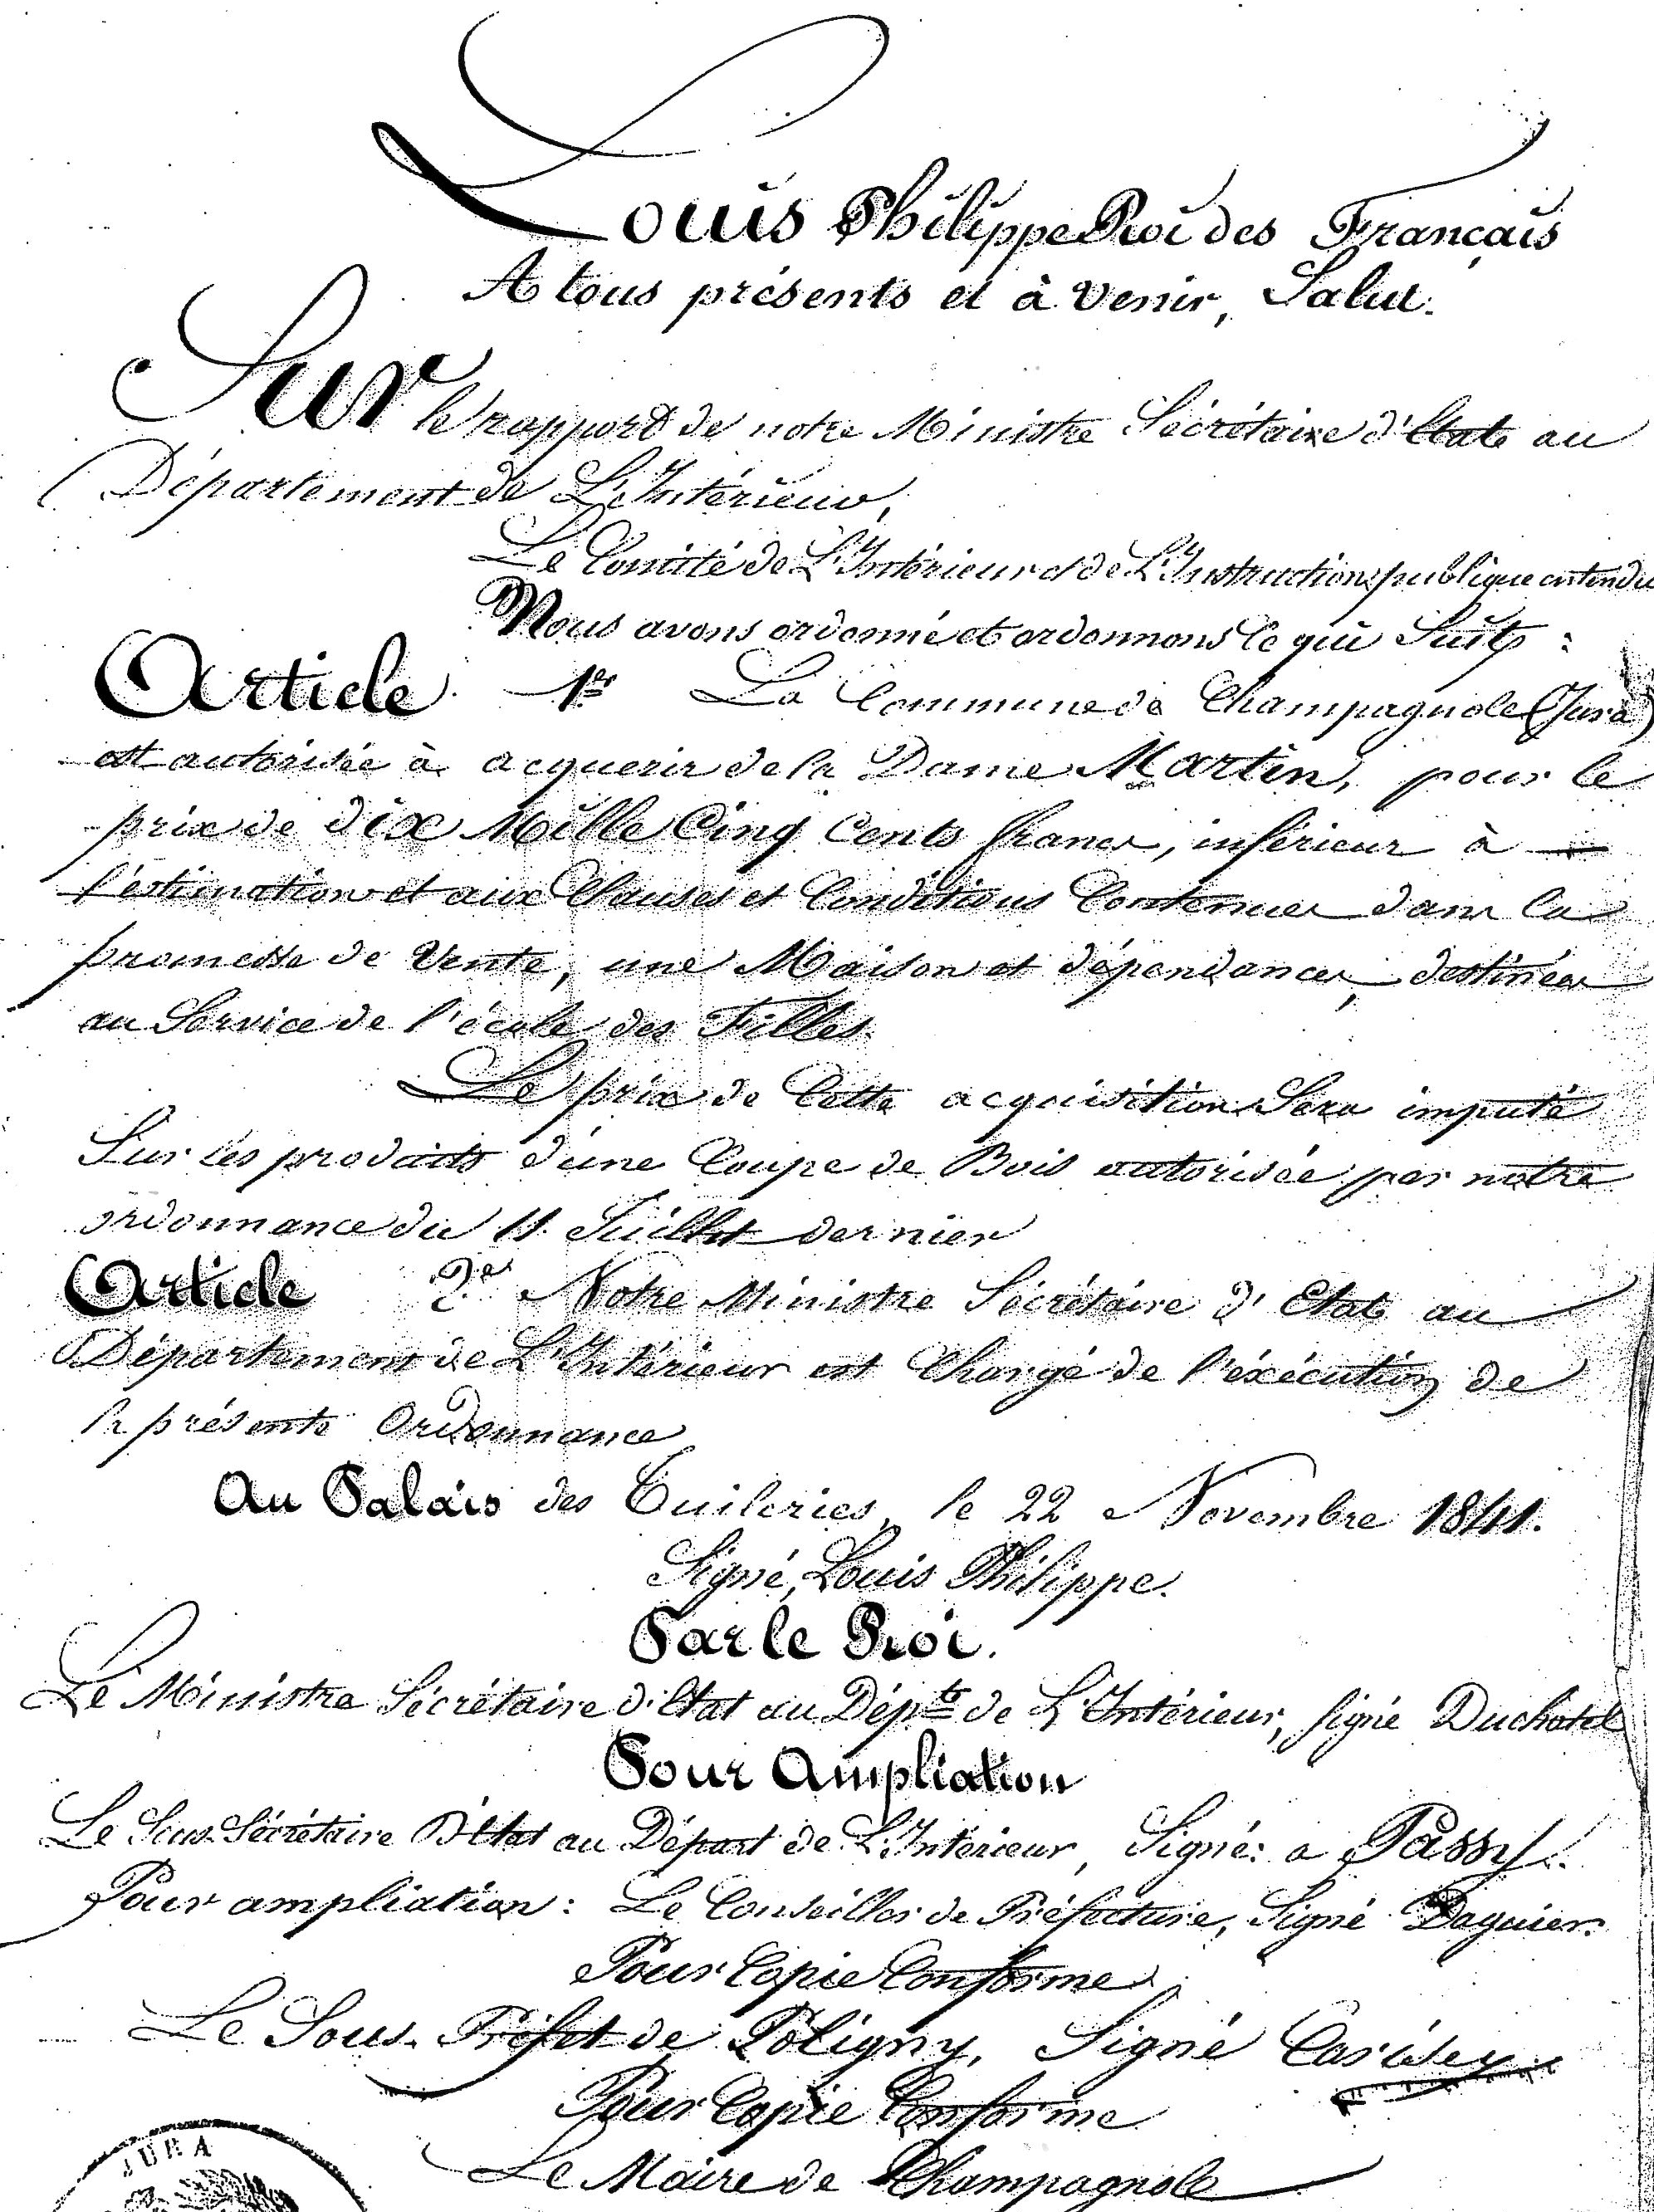 Louis Philippe Roi des Français
A tous présents et à venir, Salut.
Sur le rapport de notre Ministre Sécrétaire d'Etat au
Département de L'Intérieur,
Le Comité de L'Intérieur et de L'Instruction publique entendu
Nous avons ordonné et ordonnons ce qui Suit :
Article 1er La Commune de Champagnole (Jura)
est autorisée à acquerir de la Dame Martin, pour le
prix de dix Mille Cinq Cents francs, inférieur à
l'estimation et aux Clauses et Conditions Contenues dans la
promesse de Vente, une Maison et dépendances, destinées
au Service de l'école des Filles.
Le prix de Cette acquisition Sera imputé
Sur les produits d'une Coupe de Bois autorisée par notre
ordonnance du 11 Juillet dernier
Article 2e Notre Ministre Sécrétaire d'Etat au
Département de L'Intérieur est Chargé de l'éxécution de
la présente Ordonnance
Au Palais des Tuileries, le 22 Novembre 1841.
Signé, Louis Philippe.
Par le Roi.
Le Ministre Sécrétaire d'Etat au Dépt de L'Intérieur, signé Duchatel
Pour Ampliation
Le Sous-Sécrétaire D'Etat au Départ de L'Intérieur, Signé: a Passy.
Pour ampliation : Le Conseiller de Préfecture, Signé
Pour Copie Conforme
Le Sous-Préfet de Poligny, Signé
Pour Copie Conforme
Le Maire de Champagnole
JURA